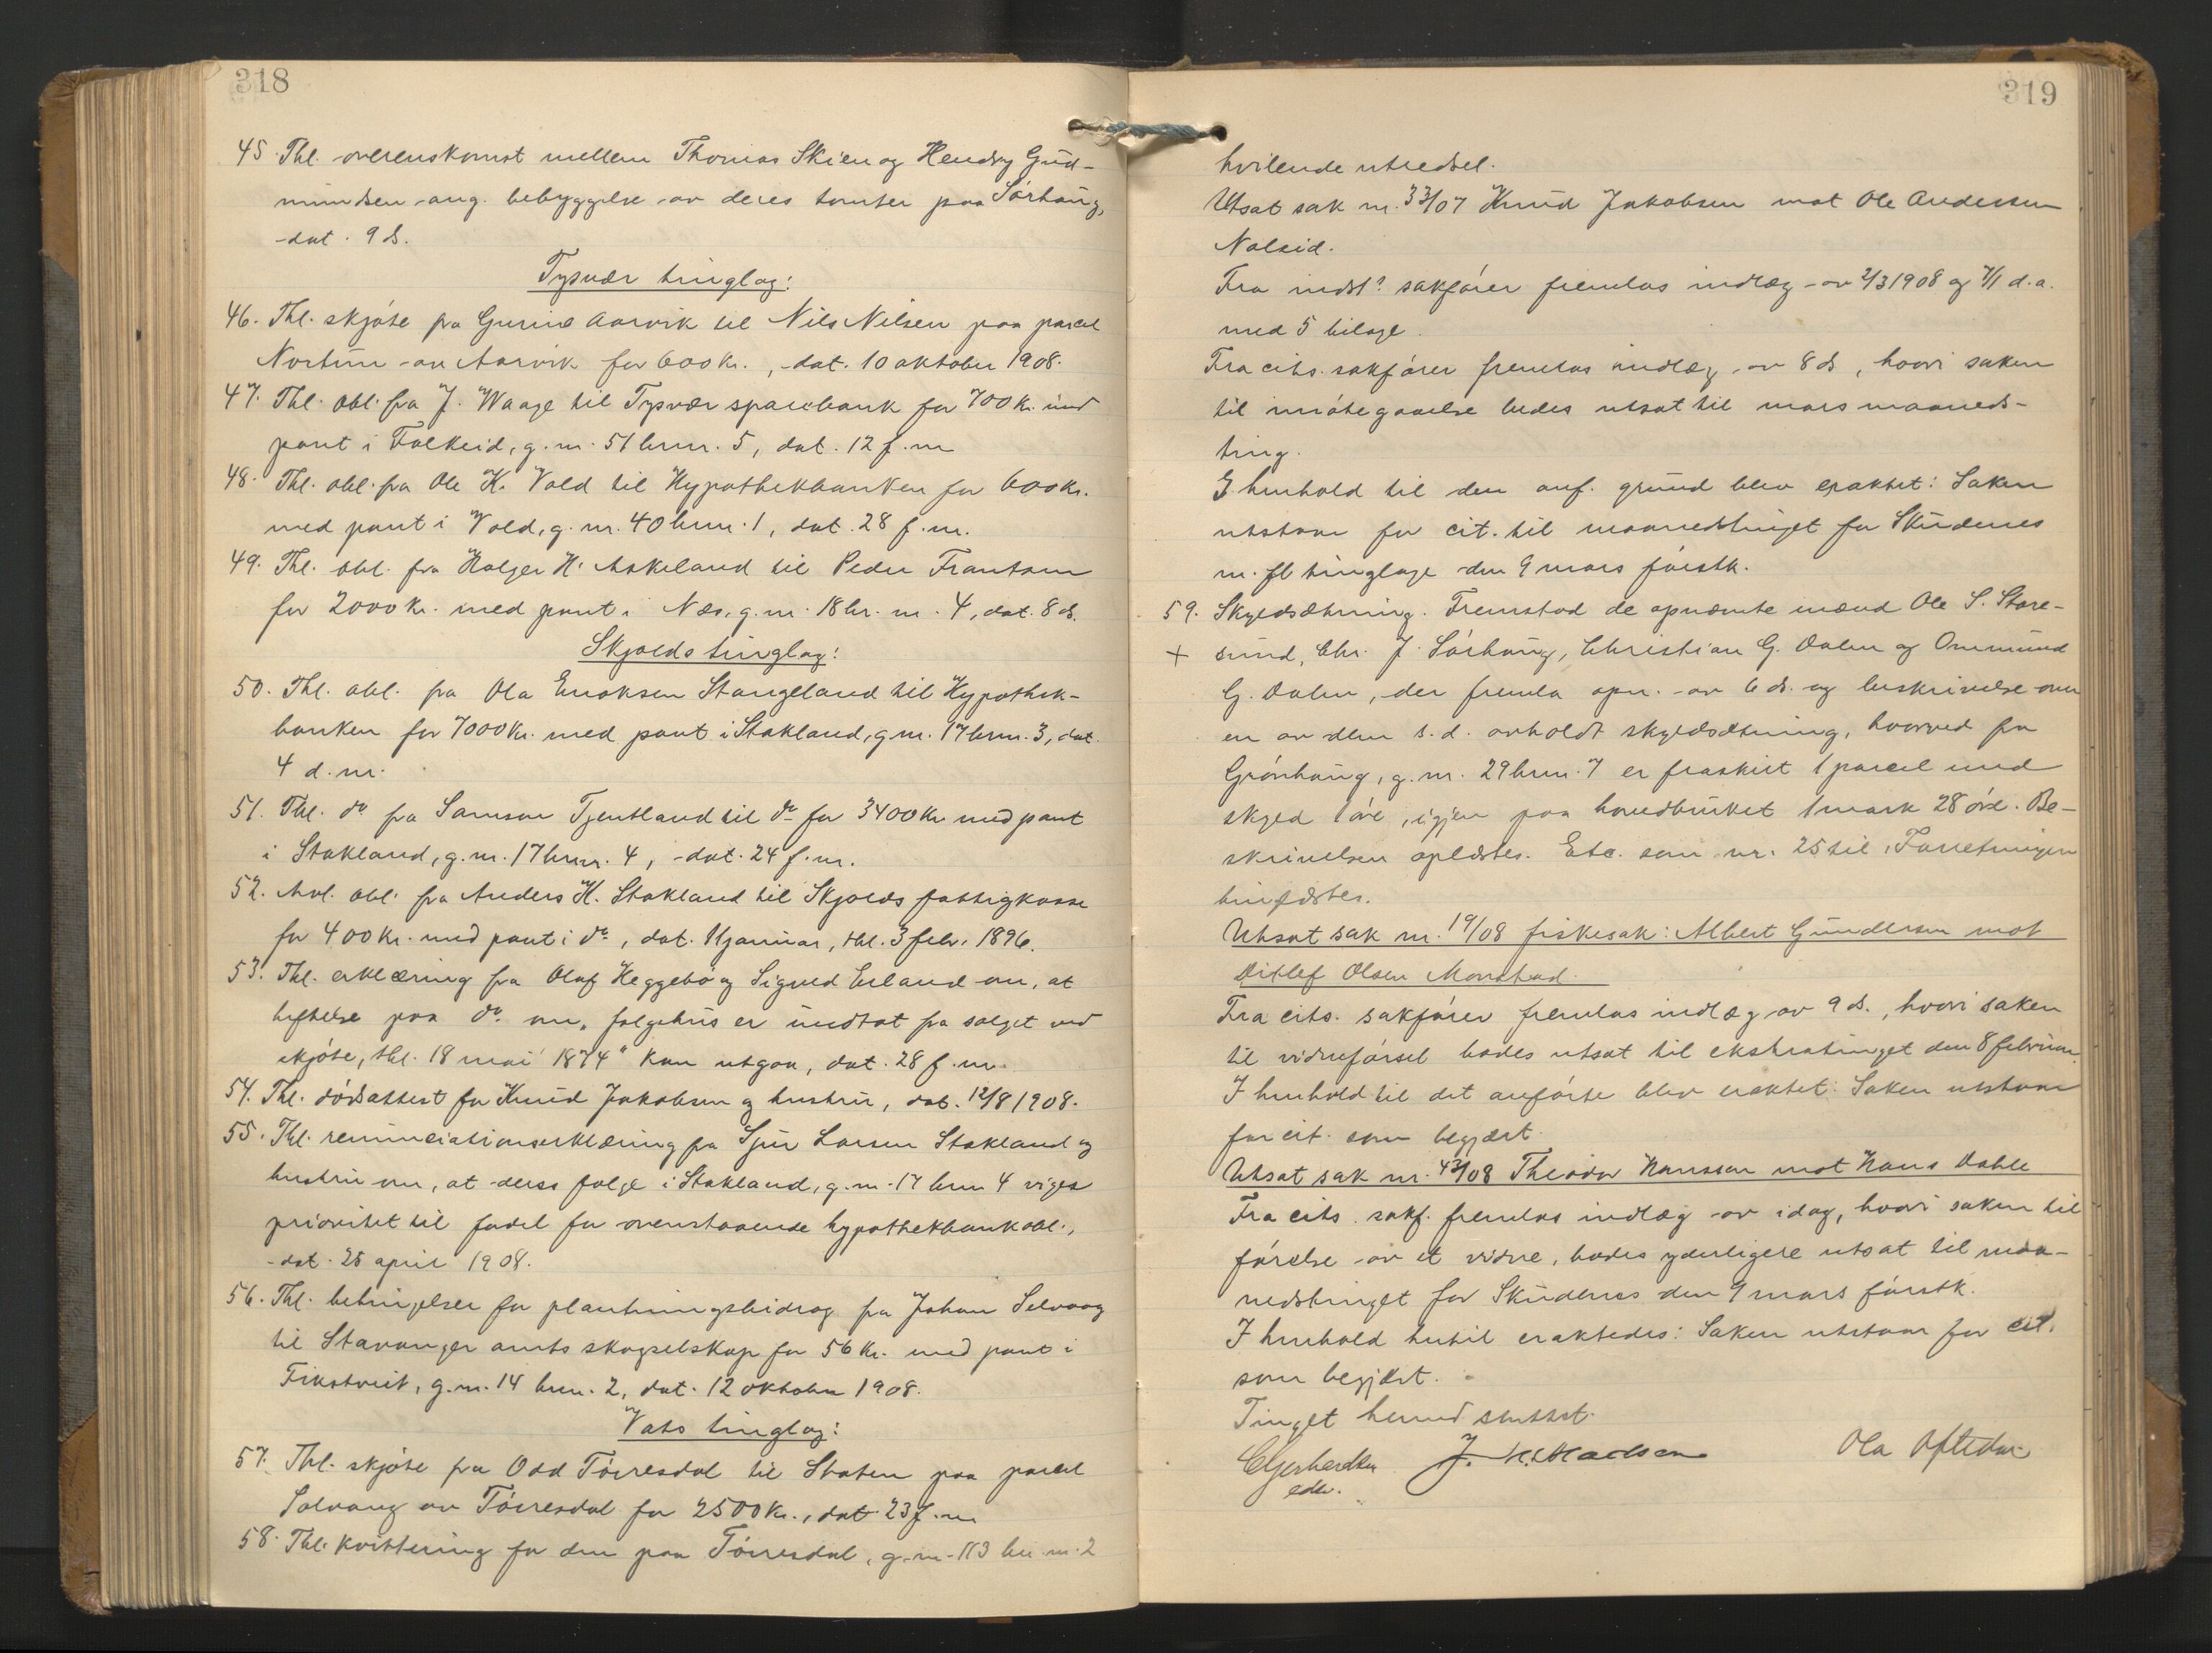 318
45. Thl. overenskomst mellem Thomas Skien og Hendry Gud-
mundsen ang. bebyggelse av deres tomter paa Sørhaug,
dat. 9 ds.
Tysvær tinglag:
46. Thl. skjøte fra Gurine Aarvik til Nils Nilsen paa parcel
Nortun av Aarvik for 600 kr., dat. 10 oktober 1908.
47. Thl. obl. fra J. Waage til Tysvær sparebank for 700 kr. med
pant i Falkeid, g.nr. 51 brnr. 5, dat. 12 f.m
48. Thl. obl. fra Ole K. Vold til Hypothekbanken for 600 kr.
med pant i Vold, g.nr. 40 brnr. 1, dat. 28 f.m.
49. Thl. obl. fra Holger H. Askeland til Peder Frantsen
for 2000 kr. med pant i Næs, g.nr. 18 br.nr. 4, dat. 8 ds.
Skjolds tinglag:
50. Thl. obl. fra Ola Enoksen Stangeland til Hypothek-
banken for 7000 kr. med pant i Stakland, gnr. 17 brnr. 3, dat.
4 d.m.
51. Thl. do fra Samson Tjentland til do for 3400 kr med pant
i Stakland, g.nr. 17 brnr. 4, dat. 24 f.m.
52. Avl. obl. fra Anders K. Stakland til Skjolds fattigkasse
for 400 kr. med pant i do, dat. 11 januar, thl. 3 febr. 1896.
53. Thl. erklæring fra Olaf Heggebø og Sigved Erland om, at
heftelse paa do om "folgehus er undtat fra salget ved
skjøte, thl. 18 mai 1874" kan utgaa, dat. 28 f.m.
54. Thl. dødsattest for Knud Jakobsen og hustru, dat. 12/8 1908.
55. Thl. renunciationserklæring fra Sjur Larsen Stakland og
hustru om, at deres folge i Stakland, g.nr. 17 brnr 4 viges
prioritet til fordel for ovenstaaende hypothekbankobl.,
dat. 25 april 1908.
56. Thl. betingelser for plantningsbidrag fra Johan Selvaag
til Stavanger amts skogselskap for 56 kr. med pant i
Fikstveit, g.nr. 14 brnr. 2, dat. 12 oktober 1908.
Vats tinglag:
57. Thl. skjøte fra Odd Tørresdal til Staten paa parcel
Solvang av Tørresdal for 2500 kr., dat 23 f.m
58. Thl. kvittering for den paa Tørresdal, g.nr. 113 br.nr. 2
319
hvilende utredsel.
Utsat sak nr. 33/07 Knud Jakobsen mot Ole Andersen
Naleid.
Fra indst? sakfører fremlas indlæg av 2/3 1908 og 7/1 d.a.
med 5 bilage.
Fra cits. sakfører fremlas indlæg av 8 ds, hvori saken
til imøtegaaelse bedes utsat til mars maaneds-
ting.
I henhold til den anf. grund blev eraktet: Saken
utstaar for cit. til maanedstinget for Skudenes
m. fl tinglage den 9 mars førstk.
59. Skyldsætning. Fremstod de opnævnte mænd Ole S. Store-
+ sund, Chr. J. Sørhaug, Christian G. Dalen og Ommund
G. Dalen, der fremla opn. av 6 ds. og beskrivelse over
en av dem s.d. avholdt skyldsætning, hvorved fra
Grønhaug, g.nr. 29 brnr. 7 er fraskilt 1 parcel med
skyld 1 øre, igjen paa hovedbruket 1 mark 28 øre. Be-
skrivelsen oplæstes. Etc. som nr. 25 til, Forretningen
tinglæstes.
Utsat sak nr. 19/08 fiskesak: Albert Gundersen mot
Ditlef Olsen Monstad.
Fra cits. sakfører fremlas indlæg av 9 ds., hvori saken
til vidneførsel bedes utsat til ekstratinget den 8 februar.
I henhold til det anførte blev eraktet: Saken utstaar
for cit. som begjært.
Utsat sak nr. 43/08 Theodor Hansson mot Hans Dahle
Fra cits. sakf. fremlas indlæg av idag, hvori saken til
førelse av et vidne, bedes yderligere utsat til maa-
nedstinget for Skudenes den 9 mars førstk.
I henhold hertil eraktedes: Saken utstaar for cit.
som begjært.
Tinget hermed sluttet.
CGerhardsen J. Madsen Ola Oftedal
edv.